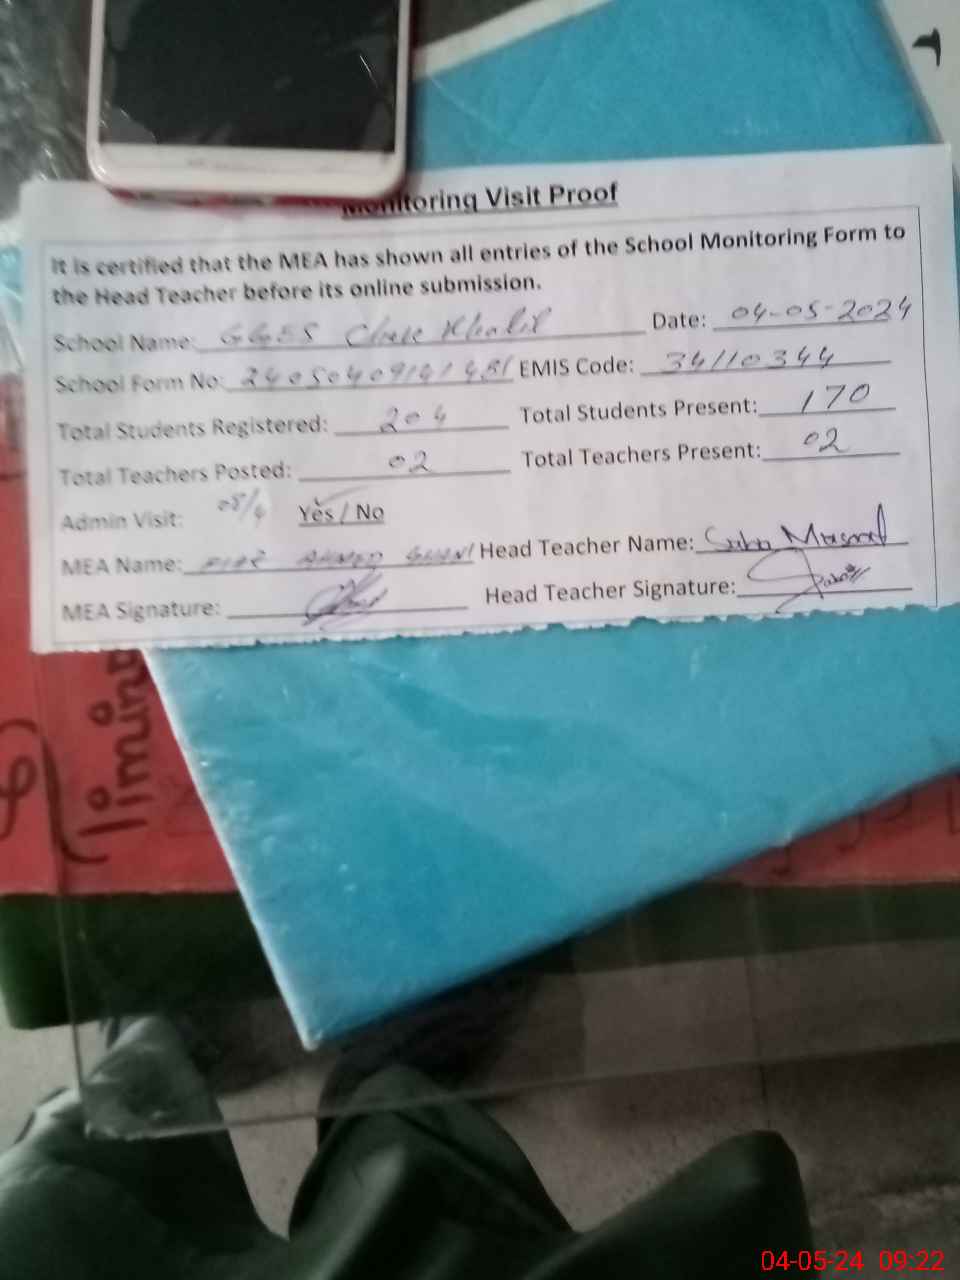 Monitoring Visit Proof
It is certified that the MEA has shown all entries of the School Monitoring Form to
the Head Teacher before its online submission.
School Name: GGES Chak Khalil Date: 04-05-2024
School Form No: EMIS Code: 34110344
Total Students Registered: 204 Total Students Present: 170
Total Teachers Posted: 02 Total Teachers Present: 02
Admin Visit: 08/4 Yes / No
MEA Name: AHMED Head Teacher Name: Saba
MEA Signature: Head Teacher Signature:
04-05-24 09:22